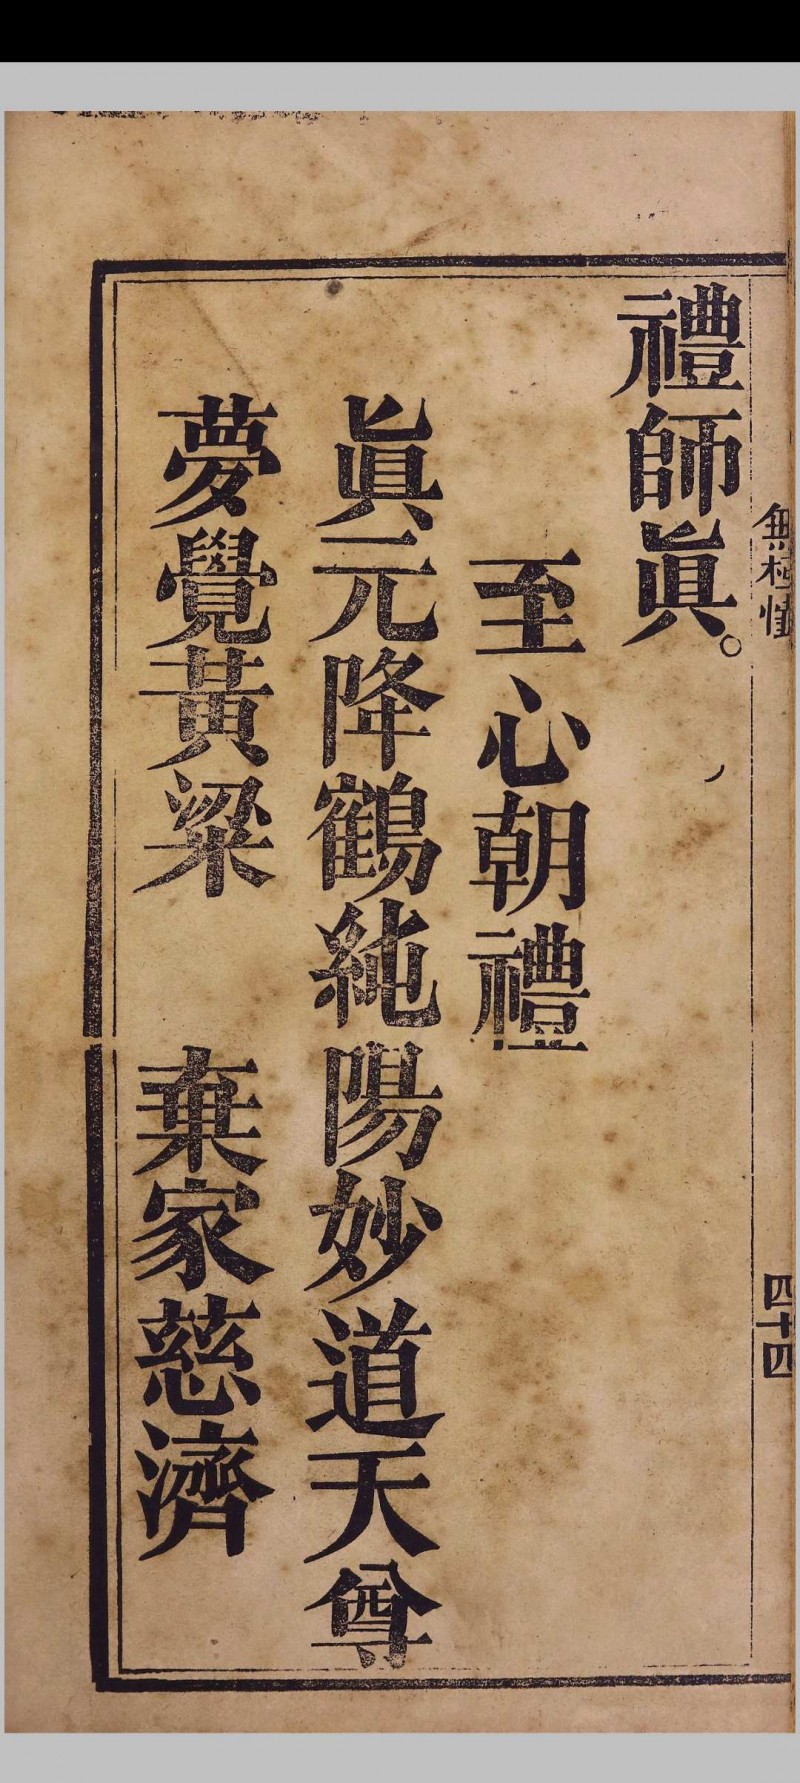 無極懺
四十四
禮師眞。
至心朝禮
眞元降鶴純陽妙道天尊
夢覺黃粱 棄家慈濟